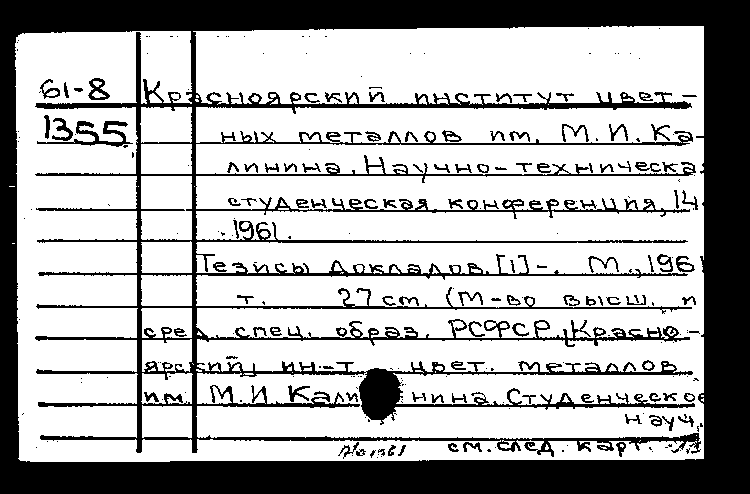 61-8 Красноярский институт цвет-
1355 ных металлов им. М.И. Ка-
линина. Научно-техническая
студенческая конференция, 14.
1961.
Тезисы докладов. [1]-. М., 1961
т. 27 cm. (М-во высш. и
сред. спец. образ. РСФСР. Красно-
ярский ин-т цвет. металлов
им. М.И. Калинина. Студенческое
науч.
см. след. карт.